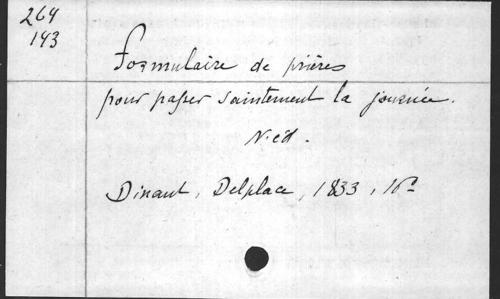 264
143
Formulaire de prières
pour passer saintement la journée.
N. éd.
Dinant, Delplace, 1833, 16°